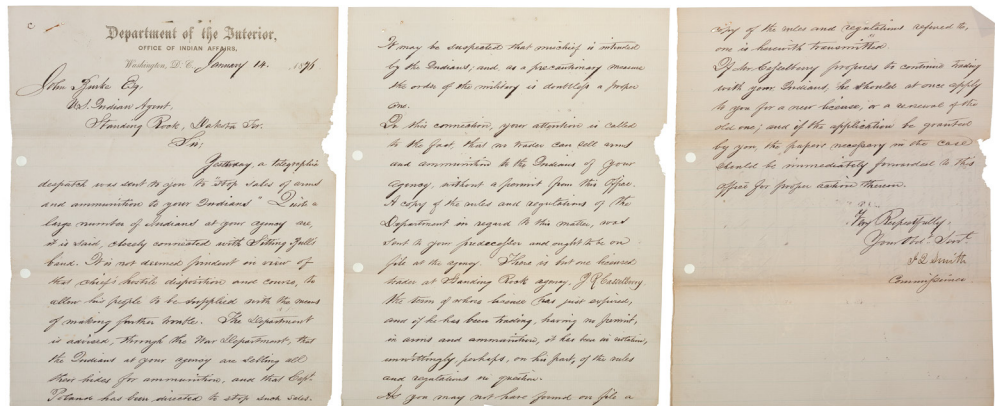 Department of the Interior,
OFFICE OF INDIAN AFFAIRS,
Washington, D. C. January 14. 1876
John Burke Esq.
U.S. Indian Agent,
Standing Rock, Dakota Ter.
Sir:
Yesterday, a telegraphic
despatch was sent to you to "stop sales of arms
and ammunition to your Indians." Quite a
large number of Indians at your agency are,
it is said, closely connected with Sitting Bull's
band. It is not deemed prudent in view of
that chief's hostile disposition and course, to
allow his people to be supplied with the means
of making further trouble. The Department
is advised, through the War Department, that
the Indians at your agency are selling all
their hides for ammunition, and that Capt.
Poland has been directed to stop such sales.
It may be suspected that mischief is intended
by the Indians; and, as a precautionary measure
the order of the military is doubtless a proper
one.
In this connection, your attention is called
to the fact, that no trader can sell arms
and ammunition to the Indians of your
agency, without a permit from this Office.
A copy of the rules and regulations of the
Department in regard to this matter, was
sent to your predecessor and ought to be on
file at the agency. There is but one licensed
trader at Standing Rock agency, J R
the term of whose license has just expired,
and if he has been trading, having no permit,
in arms and ammunition, it has been in violation,
unwittingly, perhaps, on his part, of the rules
and regulations in question.
As you may not have found on file a
copy of the rules and regulations referred to,
one is herewith transmitted.
If Mr. proposes to continue trading
with your Indians, he should at once apply
to you for a new license, or a renewal of the
old one; and if the application be granted
by you, the papers necessary in the case
should be immediately forwarded to this
office for proper action thereon.
Very Respectfully,
Your Obd. Servt.
J Q Smith
Commissioner